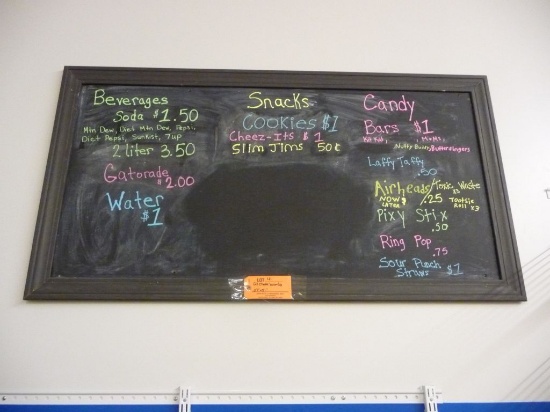 Beverages
Soda $1.50
Mtn Dew, Diet Mtn Dew, Pepsi,
Diet Pepsi, Sunkist, 7up
2 liter 3.50
Gatorade
$2.00
Water
$1
Snacks
Cookies $1
Cheez-Its $1
Slim Jims 50¢
Candy
Bars $1
Kit Kat, M&Ms,
Butterfingers
Laffy Taffy
.50
Airheads/Toxic Waste
Now & Later .25 Tootsie Roll x3
Pixy Stix
.50
Ring Pop
.75
Sour Punch
Straws $1